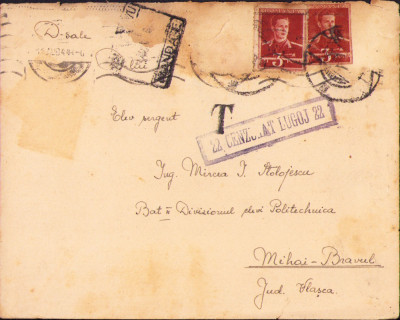 D-sale
T
22 CENZURAT LUGOJ 22
Elev sergent
Ing. Mircea I. Stolojescu
Bat II Divisionul elevi Politechnica
Mihai-Bravul
Jud. Vlașca.